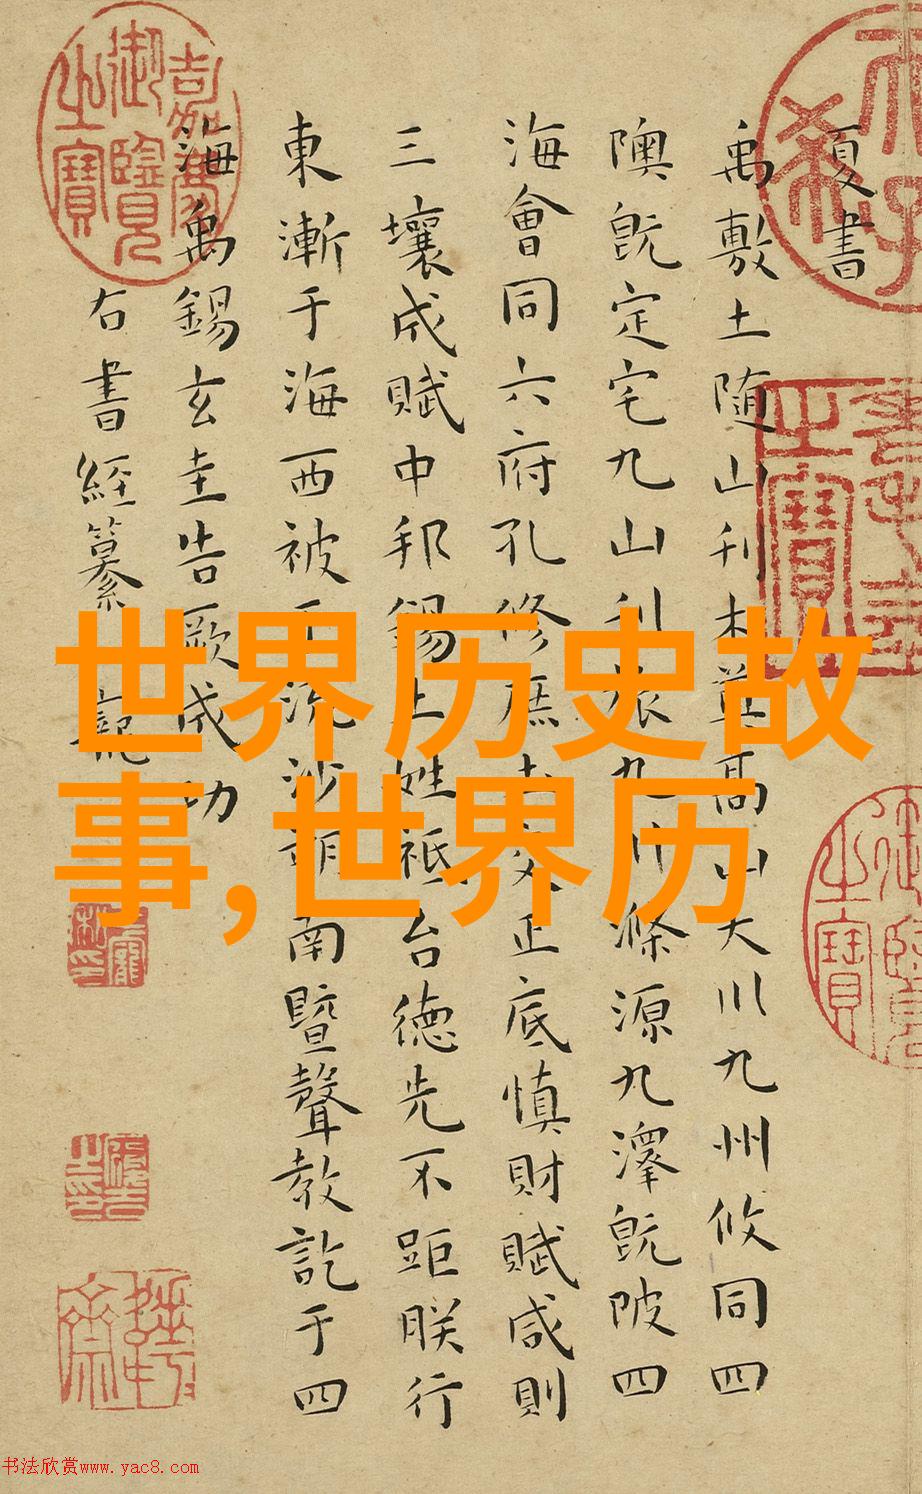 夏書
禹敷土随山刊木奠高山大川九州攸同四
隩旣定宅九山刊旅九川滌源九澤旣陂四
海會同六府孔修庶土交正底慎財賦咸則
三壤成賦中邦錫土姓祗台徳先不距朕行
東漸于海西被于流沙朔南曁聲教訖于四
海禹錫玄圭告厥成功
右書經纂
嘉慶御覽之寶
世界历史故
事,世界历
书法欣赏www.yac8.com